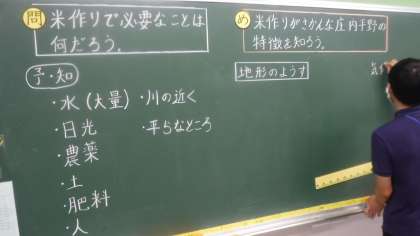 問 米作りで必要なことは
何だろう。
予・知
・水(大量)
・日光
・農薬
・土
・肥料
・人
・川の近く
・平らなところ
め 米作りがさかんな庄内平野の
特徴を知ろう。
地形のようす
気